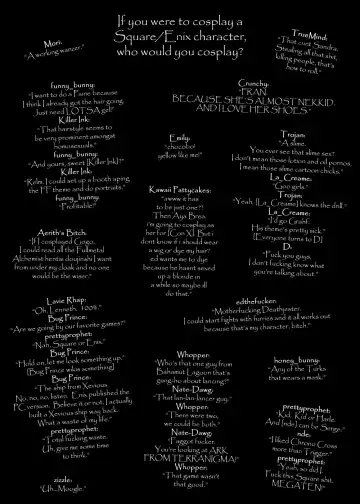 If you were to cosplay a
Square/Enix character,
who would you cosplay?
Mori:
"A working wanzer."
TrueMind:
"That cunt Sandra.
Stealing all that shit,
killing people, that's
how to roll."
funny_bunny:
"I want to do a Faris because
I think I already got the hair going.
Just need LOTSA gel!"
Killer Ink:
"That hairstyle seems to
be very prominent amongst
homosexuals."
funny_bunny:
"And yours, sweet [Killer Ink]?"
Killer Ink:
"Relm. I could set up a booth aping
the FF theme and do portraits."
funny_bunny:
"Profitable!"
Crunchy:
"FRAN.
BECAUSE SHE'S ALMOST NEKKID
AND I LOVE HER SHOES."
Emily:
"chocobo!
yellow like me!"
Trojan:
"A slime.
You ever see that slime sex?
I don't mean those lotion and oil pornos,
I mean those slime cartoon chicks."
La_Creame:
"Goo girls."
Trojan:
"Yeah. [La_Creame] knows the drill."
La_Creame:
"I'd go Grahf.
His theme's pretty sick."
[Everyone turns to D.]
D.:
"Fuck you guys,
I don't fucking know what
you're talking about."
Kawaii Pattycakes:
"awww it has
to be just one?!
Then Aya Brea.
i'm going to cosplay as
her for [Con X]. But i
dont know if i should wear
a wig or dye my hair!
ed wants me to dye
because he hasnt sexed
up a blonde in
a while so maybe ill
do that."
Aerith's Bitch:
"If I cosplayed Gogo,
I could read all the Fullmetal
Alchemist hentai doujinshi I want
from under my cloak and no one
would be the wiser."
Lavie Rhap:
"Oh, Lenneth. 100%."
Bug Prince:
"Are we going by our favorite games?"
prettyprophet:
"Nah. Square or Enix."
Bug Prince:
"Hold on, let me look something up."
[Bug Prince wikis something]
Bug Prince:
"The ship from Xevious.
No, no, no, listen. Enix published the
PC version. Believe it or not, I actually
built a Xevious ship way back.
What a waste of my life."
prettyprophet:
"Total fucking waste.
Uh, give me some time
to think."
zizzle:
"Uh...Moogle."
edthefucker:
"Motherfucking Deathgazer.
I could start fights with furries and it all works out
because that's my character, bitch."
Whopper:
"Who's that one guy from
Bahamut Lagoon that's
gung-ho about lancing?"
Nate-Dawg:
"That lan-lan-lancer guy."
Whopper:
"There were two,
we could be both."
Nate-Dawg:
"Faggot fucker.
You're looking at ARK
FROM TERRANIGMA!"
Whopper:
"That game wasn't
that good."
honey_bunny:
"Any of the Turks
that wears a mask."
prettyprophet:
"Kid. Kid or Harle.
And [nde] can be Serge."
nde:
"I liked Chrono Cross
more than Trigger."
prettyprophet:
"Yeah, so did I.
Fuck this Square shit.
MEGATEN!"